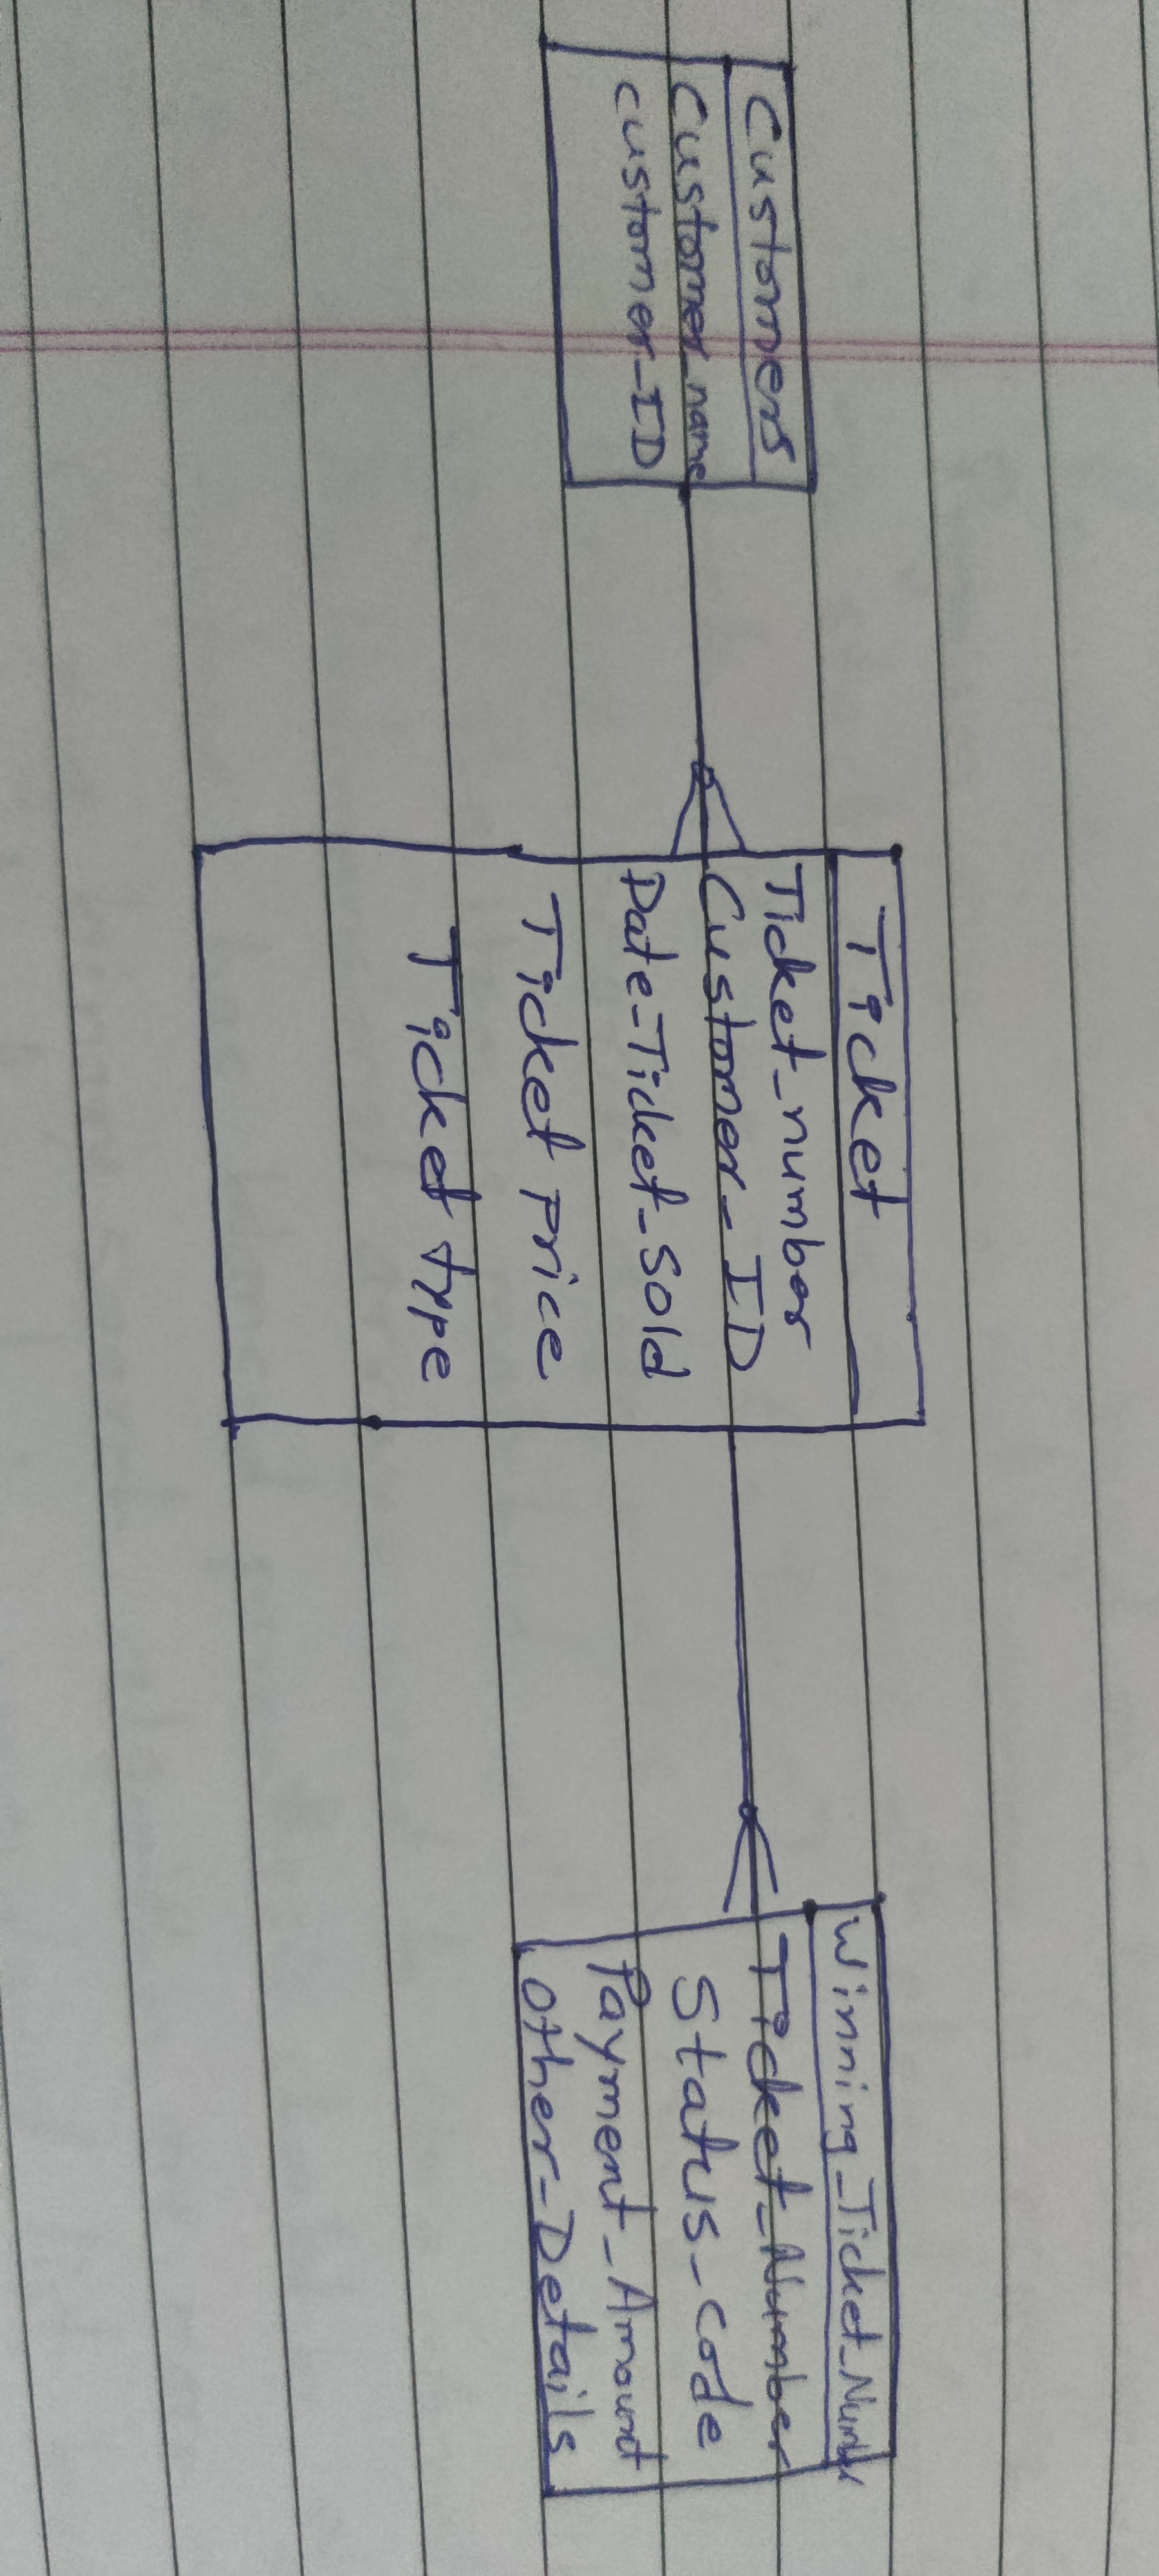 Customers
Customer_name
customer_ID
Ticket
Ticket_number
Customer_ID
Date_Ticket_Sold
Ticket price
Ticket type
Winning_Ticket_Number
Ticket_Number
Status_code
Payment_Amount
other_Details